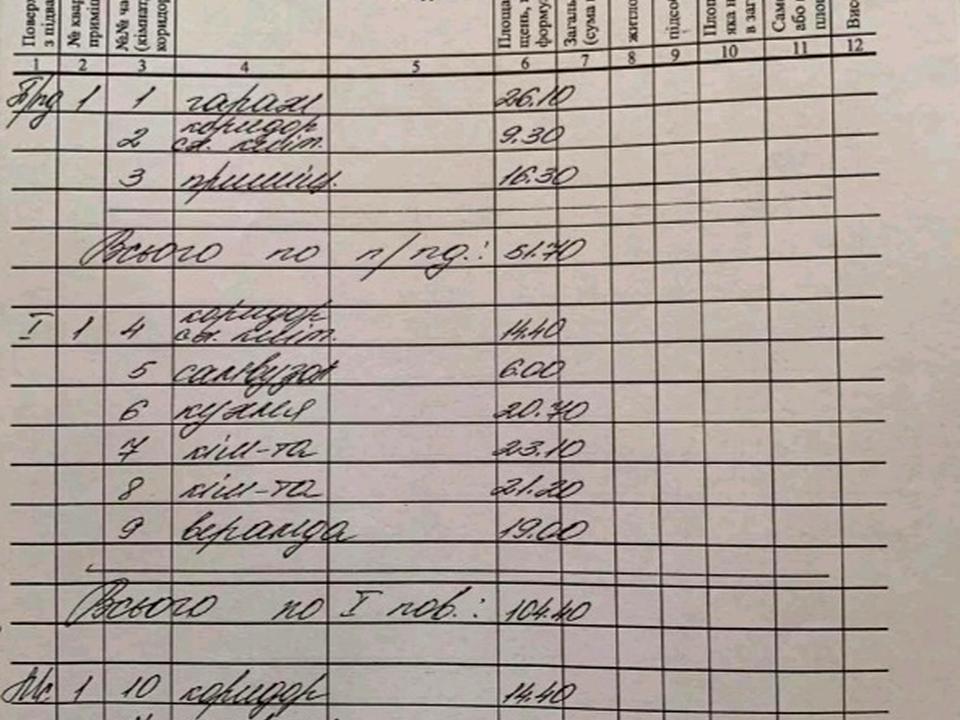 Поверх
з підва
№ квар
приміщ
№№ ча
(кімнат,
коридор
Площа
щень, п
формул
Загаль
(сума п
житло
підсоб
Площ
яка н
в заг
Само
або
площ
Висо
1 2 3 4 5 6 7 8 9 10 11 12
П/пд 1 1 гараж 26.10
2 коридор
сх. кліт. 9.30
3 приміщ. 16.30
Всього по п/пд.: 51.70
I 1 4 коридор
сх. кліт. 14.40
5 санвузол 6.00
6 кухня 20.70
7 кім-та 23.10
8 кім-та 21.20
9 веранда 19.00
Всього по I пов.: 104.40
Мс 1 10 коридор 14.40